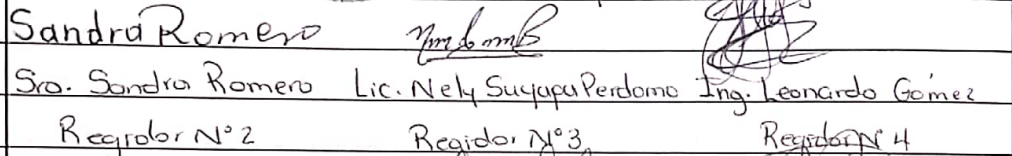 Sandra Romero
Sra. Sandra Romero Lic. Nely Suyapa Perdomo Ing. Leonardo Gómez
Regidor N°2 Regidor N°3 Regidor N° 4